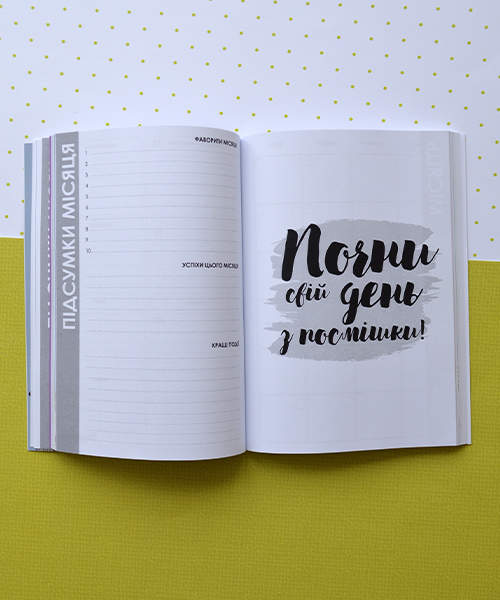 ПІДСУМКИ МІСЯЦЯ
ФАВОРИТИ МІСЯЦЯ
1
2
3
4
5
6
7
8
9
10
УСПІХИ ЦЬОГО МІСЯЦЯ
КРАЩІ ПОДІЇ
Почни
свій день
з посмішки!